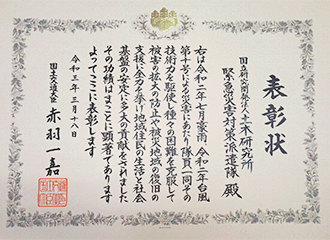 表彰状
国立研究開発法人土木研究所
緊急災害対策派遣隊 殿
右は令和二年七月豪雨、令和二年台風
第十号による災害にあたり隊員一同その
技術力を駆使し種々の困難を克服して
被害の拡大の防止や被災地域の復旧の
支援に全力を挙げ地域住民の生活と社会
基盤の安定に多大の貢献をされました
その功績はまことに顕著であります
よってここに表彰します
令和三年三月十八日
国土交通大臣 赤羽一嘉